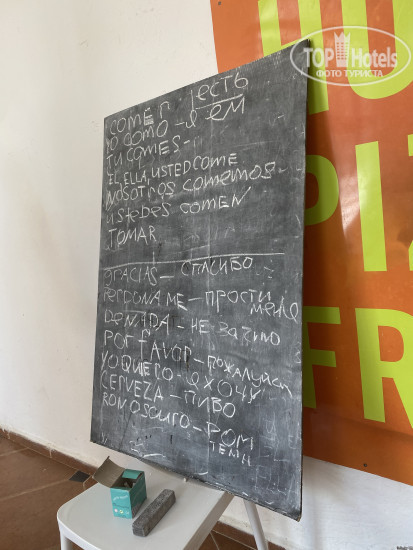 TopHotels
ФОТО ТУРИСТА
COMER ЕСТЬ
YO COMO - Я ЕМ
TU COMES -
EL ELLA, USTED COME
NOSOTROS COMEMOS -
USTEDES COMEN
TOMAR
GRACIAS - СПАСИБО
PERDONAME - ПРОСТИ
МЕНЯ
DE NADA - НЕ ЗА ЧТО
POR FAVOR - ПОЖАЛУЙСТ
YO QUIERO - Я ХОЧУ
CERVEZA - ПИВО
RON OSCURO - РОМ
ТЕМН
PIZ
FR